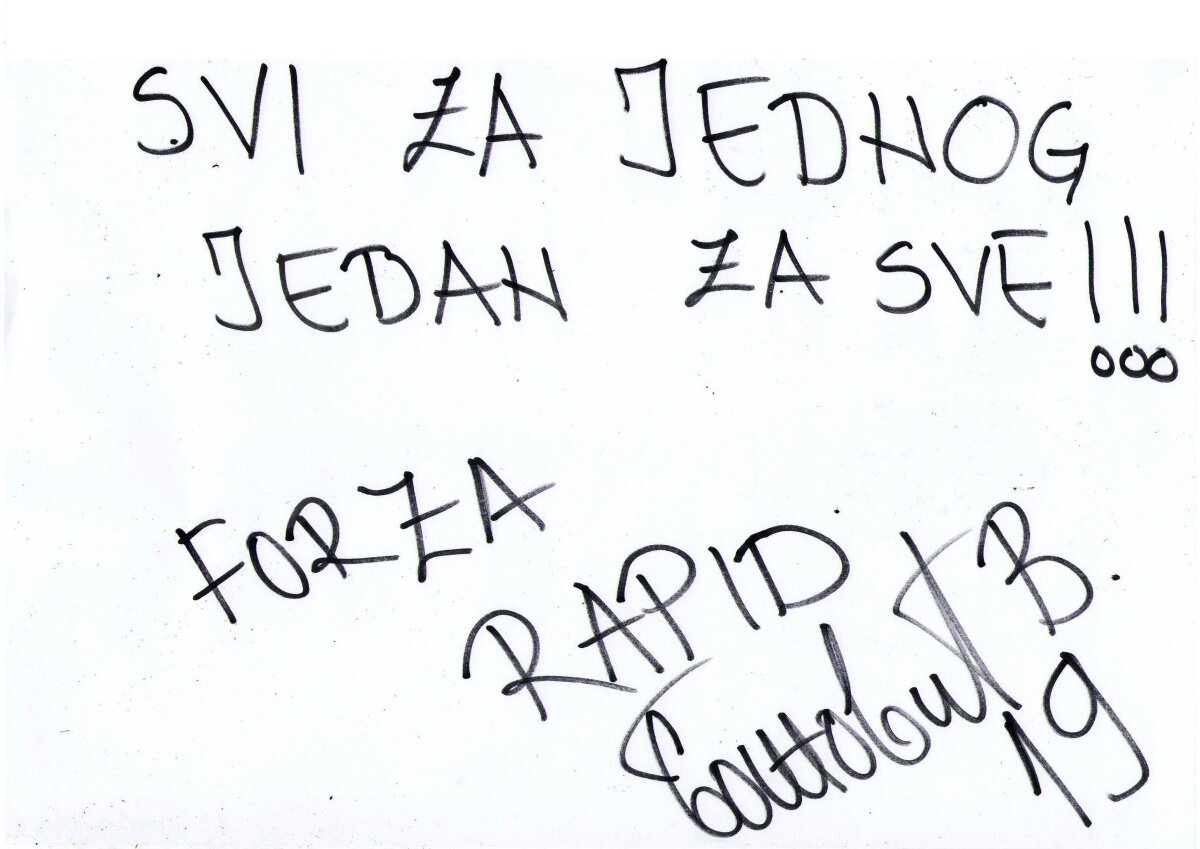 SVI ZA JEDNOG
JEDAN ZA SVE!!!
FORZA
RAPID
B.
19